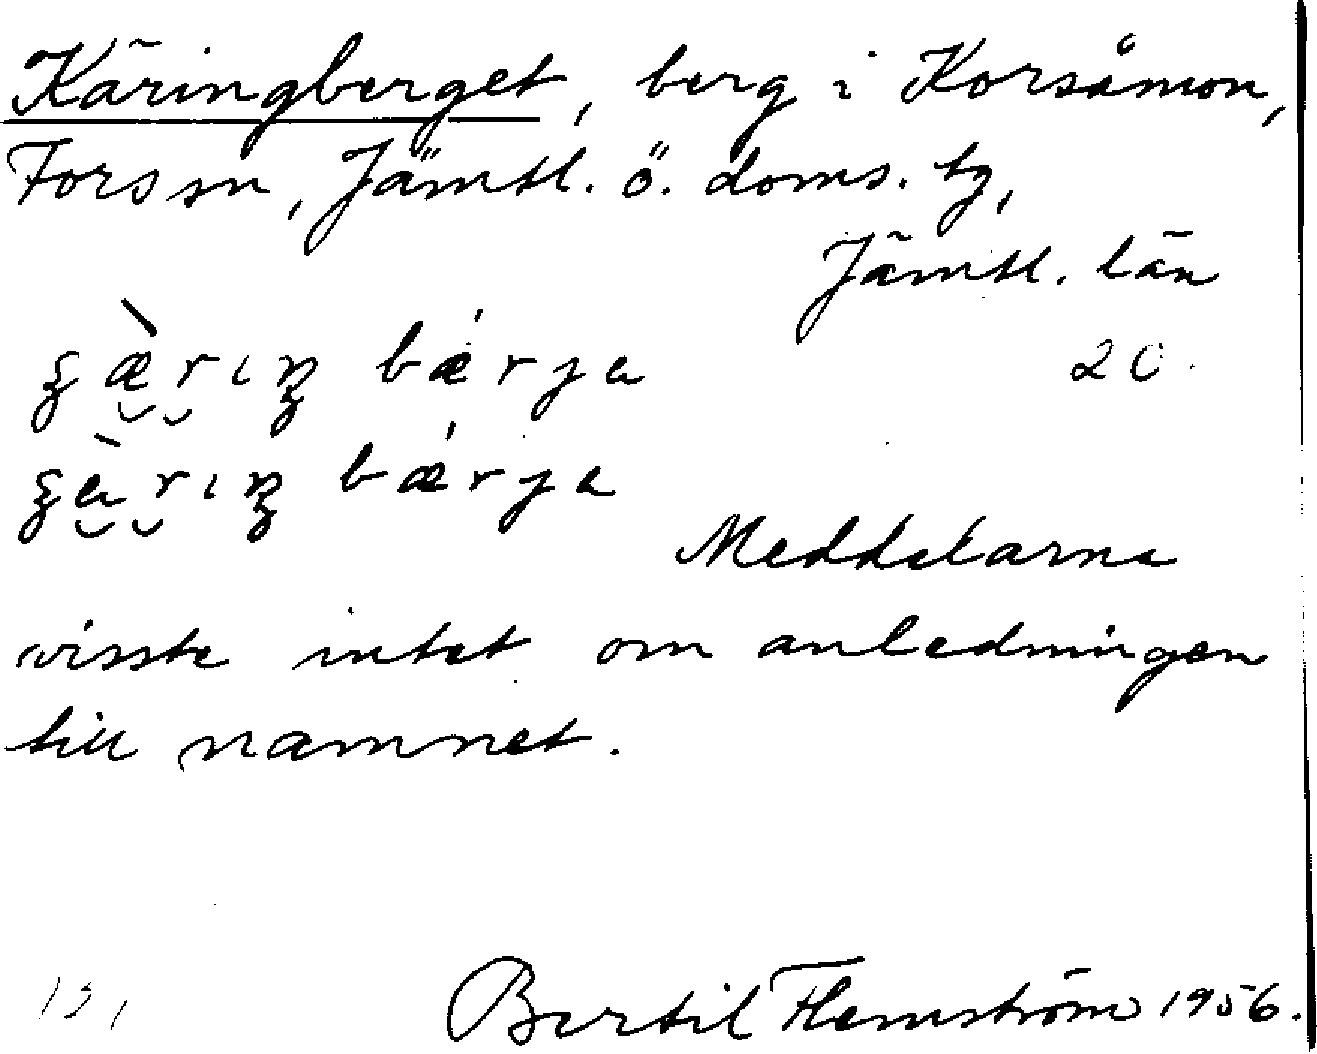 Käringberget, berg i Korsåmon,
Forssn, Jämtl. ö. doms. tg,
Jämtl. län
20
bǽrja
bǽrja
Meddelarna
visste intet om anledningen
till namnet.
Bertil Flemström 1956.